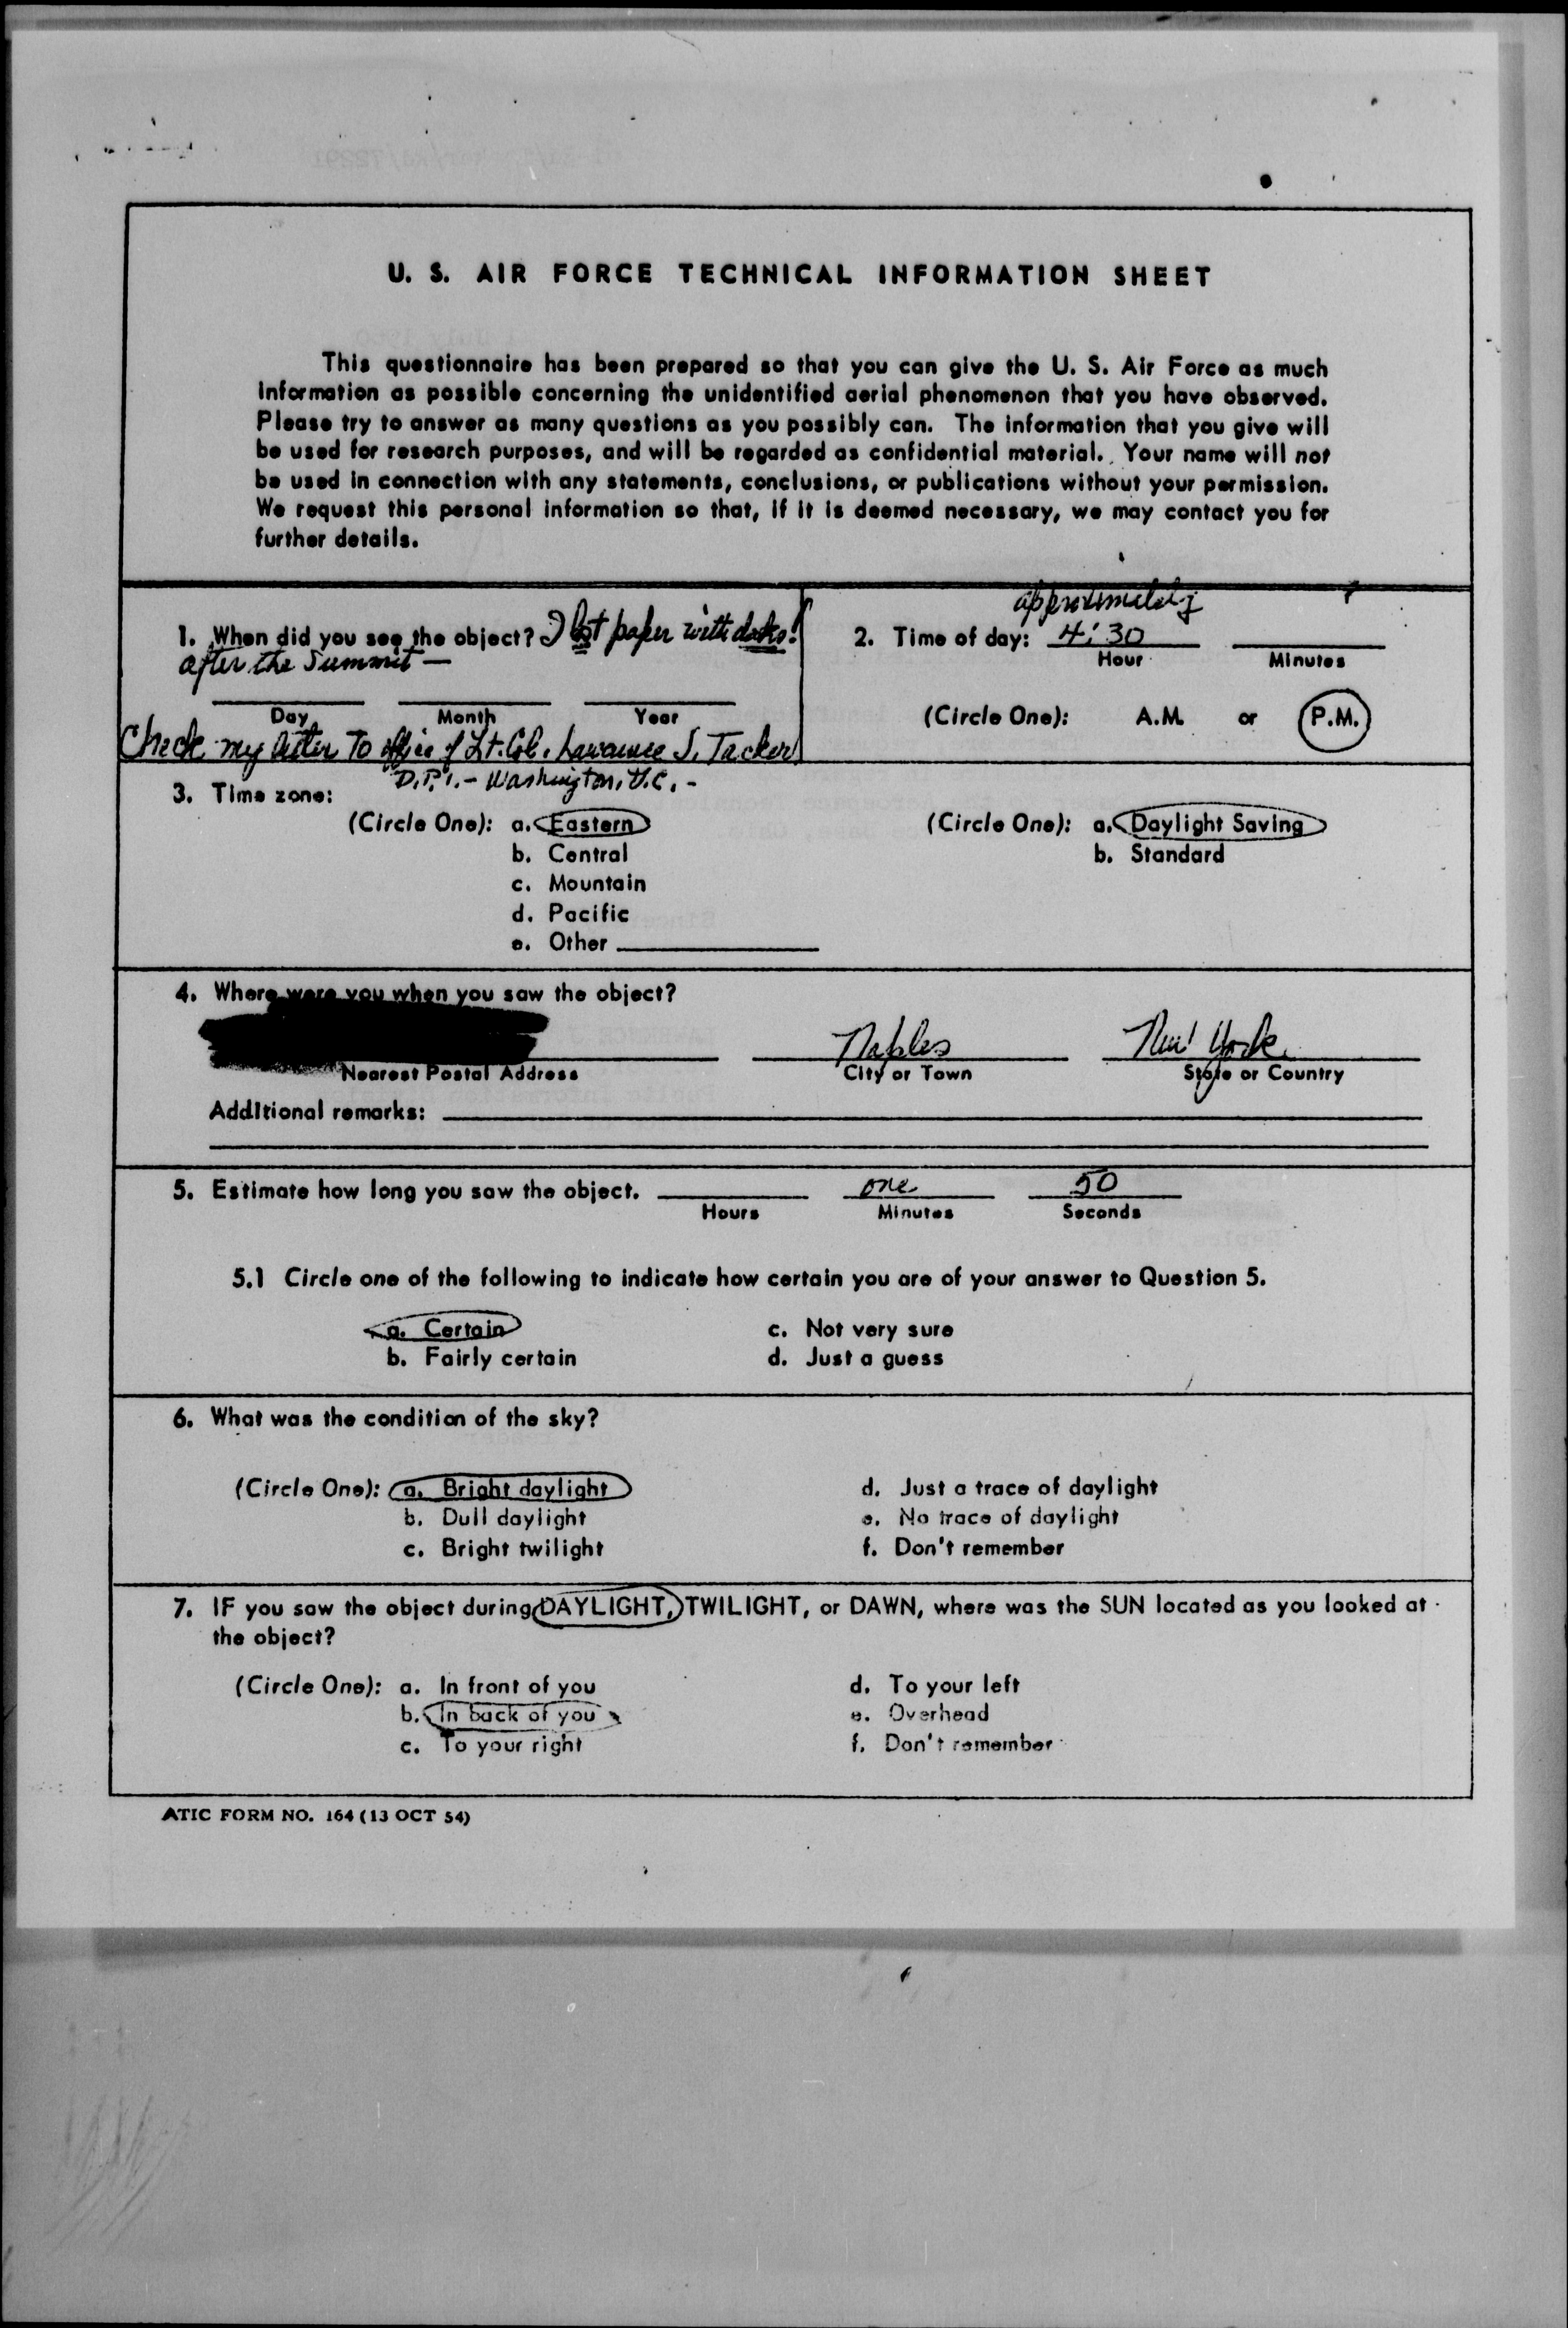 U. S. AIR FORCE TECHNICAL INFORMATION SHEET
This questionnaire has been prepared so that you can give the U. S. Air Force as much
information as possible concerning the unidentified aerial phenomenon that you have observed.
Please try to answer as many questions as you possibly can. The information that you give will
be used for research purposes, and will be regarded as confidential material. Your name will not
be used in connection with any statements, conclusions, or publications without your permission.
We request this personal information so that, if it is deemed necessary, we may contact you for
further details.
1. When did you see the object? I lost paper with dates!
after the Summit —
Day Month Year
Check my letter To office of Lt. Col. Lawrence J. Tacker
D.P.I. - Washington, D.C. -
approximately
2. Time of day: 4:30
Hour Minutes
(Circle One): A.M. or P.M.
3. Time zone:
(Circle One): a. Eastern
b. Central
c. Mountain
d. Pacific
e. Other
(Circle One): a. Daylight Saving
b. Standard
4. Where were you when you saw the object?
Naples New York
Nearest Postal Address City or Town State or Country
Additional remarks:
5. Estimate how long you saw the object. one 50
Hours Minutes Seconds
5.1 Circle one of the following to indicate how certain you are of your answer to Question 5.
a. Certain c. Not very sure
b. Fairly certain d. Just a guess
6. What was the condition of the sky?
(Circle One): a. Bright daylight d. Just a trace of daylight
b. Dull daylight e. No trace of daylight
c. Bright twilight f. Don't remember
7. IF you saw the object during DAYLIGHT, TWILIGHT, or DAWN, where was the SUN located as you looked at
the object?
(Circle One): a. In front of you d. To your left
b. In back of you e. Overhead
c. To your right f. Don't remember
ATIC FORM NO. 164 (13 OCT 54)